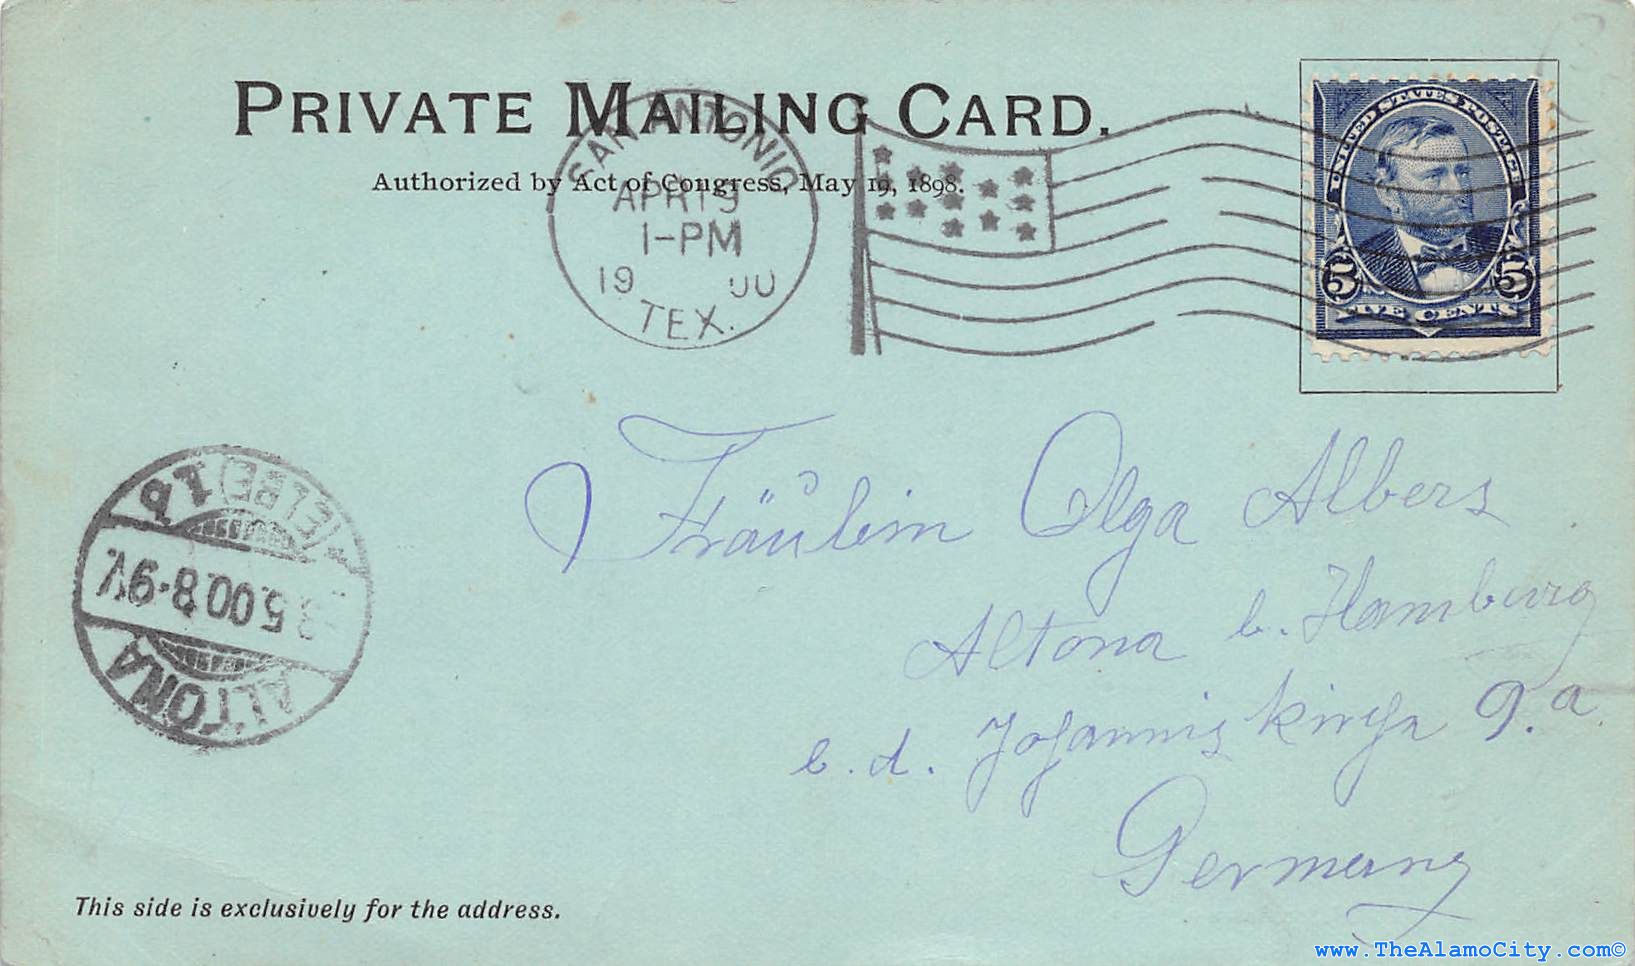 PRIVATE MAILING CARD.
Authorized by Act of Congress, May 19, 1898.
SAN ANTONIO
APR 19
1-PM
19 00
TEX.
UNITED STATES POSTAGE
5 5
FIVE CENTS
Fräulein Olga Albers
Altona b. Hamburg
b. d. Johanniskirche 9.a.
Germany
ALTONA
5.00.8-9V.
(ELBE) 1
This side is exclusively for the address.
www.TheAlamoCity.com©